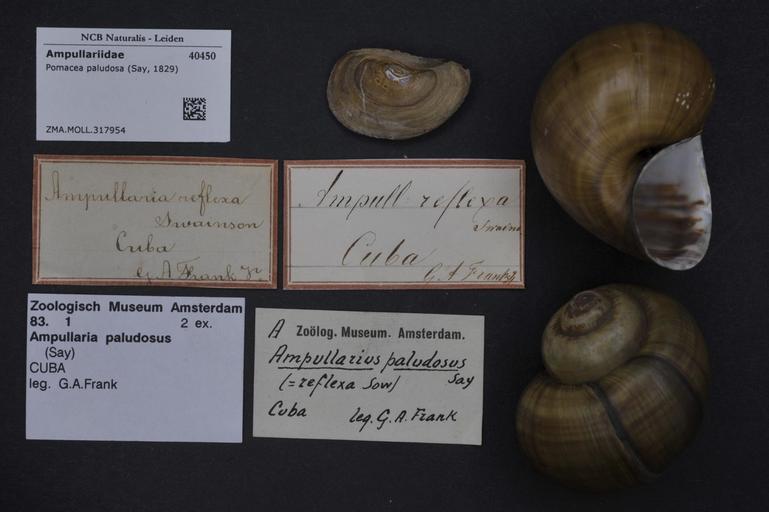 NCB Naturalis - Leiden
Ampullariidae 40450
Pomacea paludosa (Say, 1829)
ZMA.MOLL.317954
Ampullaria reflexa
Swainson
Cuba
G. A Frank Jr.
Ampull reflexa
Cuba
G A Frank
Zoologisch Museum Amsterdam
83. 1 2 ex.
Ampullaria paludosus
(Say)
CUBA
leg. G.A.Frank
A Zoölog. Museum. Amsterdam.
Ampullarius paludosus
(= reflexa Sow) Say
Cuba leg. G. A. Frank